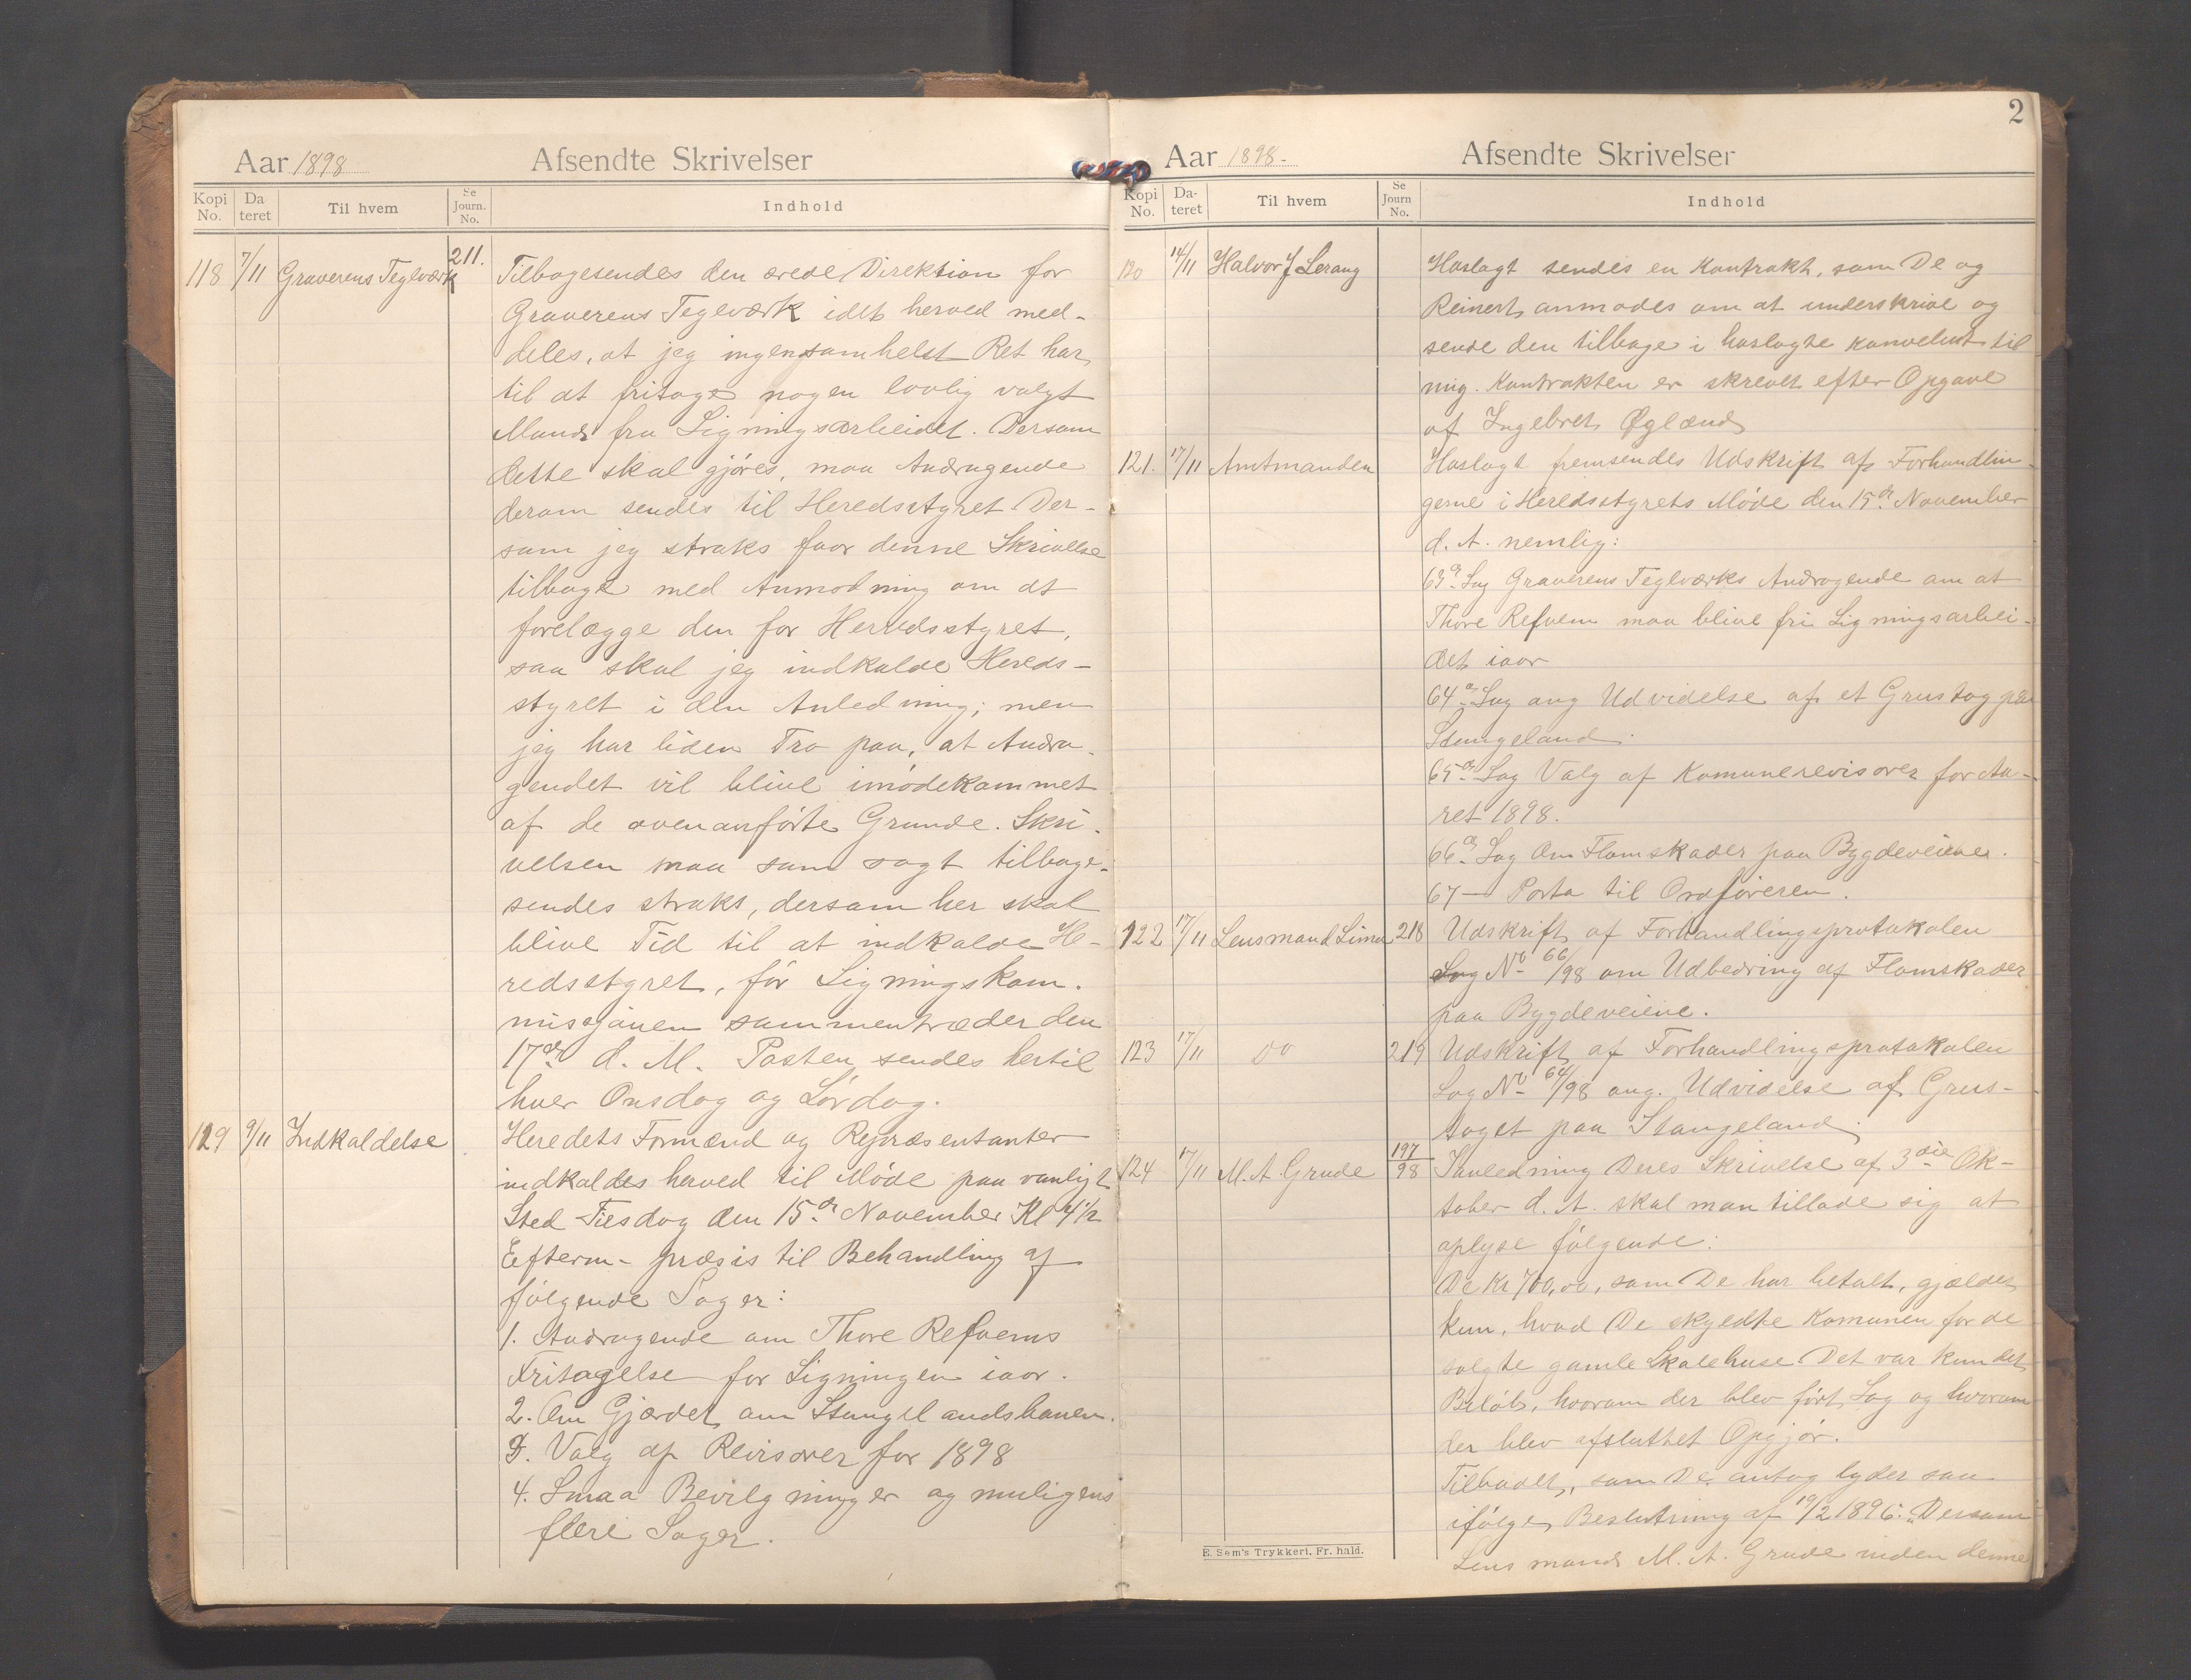 Aar 1898 Afsendte Skrivelser
Kopi No. Da teret Til hvem Se Journ. No. Indhold
118 7/11 Graverens Teglværk 211. Tilbagesendes den ærede Direktion for
Graverens Teglværk idet herved med-
deles, at jeg ingensomhelst Ret har
til at fritage nogen lovlig valgt
Mand fra Ligningsarbeidet. Dersom
dette skal gjøres, maa Andragende
derom sendes til Heredsstyret Der-
som jeg straks faar denne Skrivelse
tilbage med Anmodning om at
forelægge den for Herredsstyret,
saa skal jeg indkalde Hereds-
styret i den Anledning; men
jeg har liden Tro paa, at Andra-
gendet vil blive imødekommet
af de ovenanførte Grunde. Skri-
velsen maa som sagt tilbage-
sendes straks, dersom her skal
blive Tid til at indkalde He-
redsstyret, før Ligningskom-
missjonen sammentræder den
17de d. M. Posten sendes hertil
hver Onsdag og Lørdag.
129 9/11 Indkaldelse Heredets Formænd og Repræsentanter
indkaldes herved til Møde paa vanligt
Sted Tiesdag den 15de November Kl 4 1/2
Efterm- præsis til Behandling af
følgende Sager:
1. Andragende om Thore Refvems
Fritagelse for Ligningen iaar.
2. Om Gjærdet om Stangelandshaven.
3. Valg af Revisorer for 1898
4. Smaa Bevilgninger og muligens
flere Sager.
2
Aar 1898- Afsendte Skrivelser
Kopi No. Da- teret Til hvem Se Journ No. Indhold
120 14/11 Halvor J Lerang Hoslagt sendes en Kontrakt, som De og
Reinert anmodes om at underskrive og
sende den tilbage i hoslagte konvelut til
mig. Kontrakten er skrevet efter Opgave
af Ingebret Øglænd
121. 17/11 Amtmanden Hoslagt fremsendes Udskrift af Forhandlin-
gerne i Heredsstyrets Møde den 15de November
d. A. nemlig:
63de Sag Graverens Teglværks Andragende om at
Thore Refvem maa blive fri Ligningsarbei-
det iaar
64de Sag ang Udvidelse af et Grustag paa
Stangeland.
65de Sag Valg af Komunerevisorer for Aa-
ret 1898.
66de Sag Om Flomskader paa Bygdeveiene.
67— Porto til Ordføreren.
122 17/11 Lensmand Lima 218 Udskrift af Forhandlingsprotokolen
Sag No 66/98 om Udbedring af Flomskader
paa Bygdeveiene.
123 17/11 Do 219 Udskrift af Forhandlingsprotokolen
Sag No 64/98 ang. Udvidelse af Grus-
taget paa Stangeland.
124 17/11 M. A Grude 197/98 I anledning Deres Skrivelse af 3die Ok-
tober d. A. skal man tillade sig at
oplyse følgende:
De Kr 700,00, som De har betalt, gjælder
kun, hvad De skyldte Komunen for de
solgte gamle Skolehuse. Det var kun det
Beløb, hvorom der blev ført Sag og hvorom
der blev afsluttet Opgjør.
Tilbudet, som De antog lyder saa
ifølge Beslutning af 19/2 1896: „Dersom
Lensmand M. A. Grude inden denne
E. Sem's Trykkeri, Fr. hald.